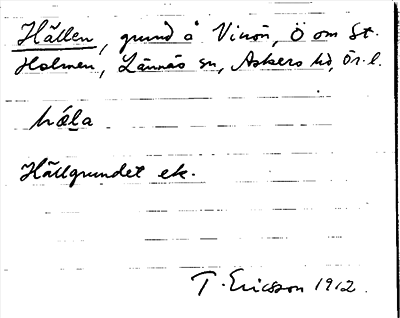 Hällen, grund å Vinön, Ö om St.
Holmen, Lännäs sn, Askers hd, Ör. l.
hǽla
Hällgrundet ek.
T. Ericsson 1912.